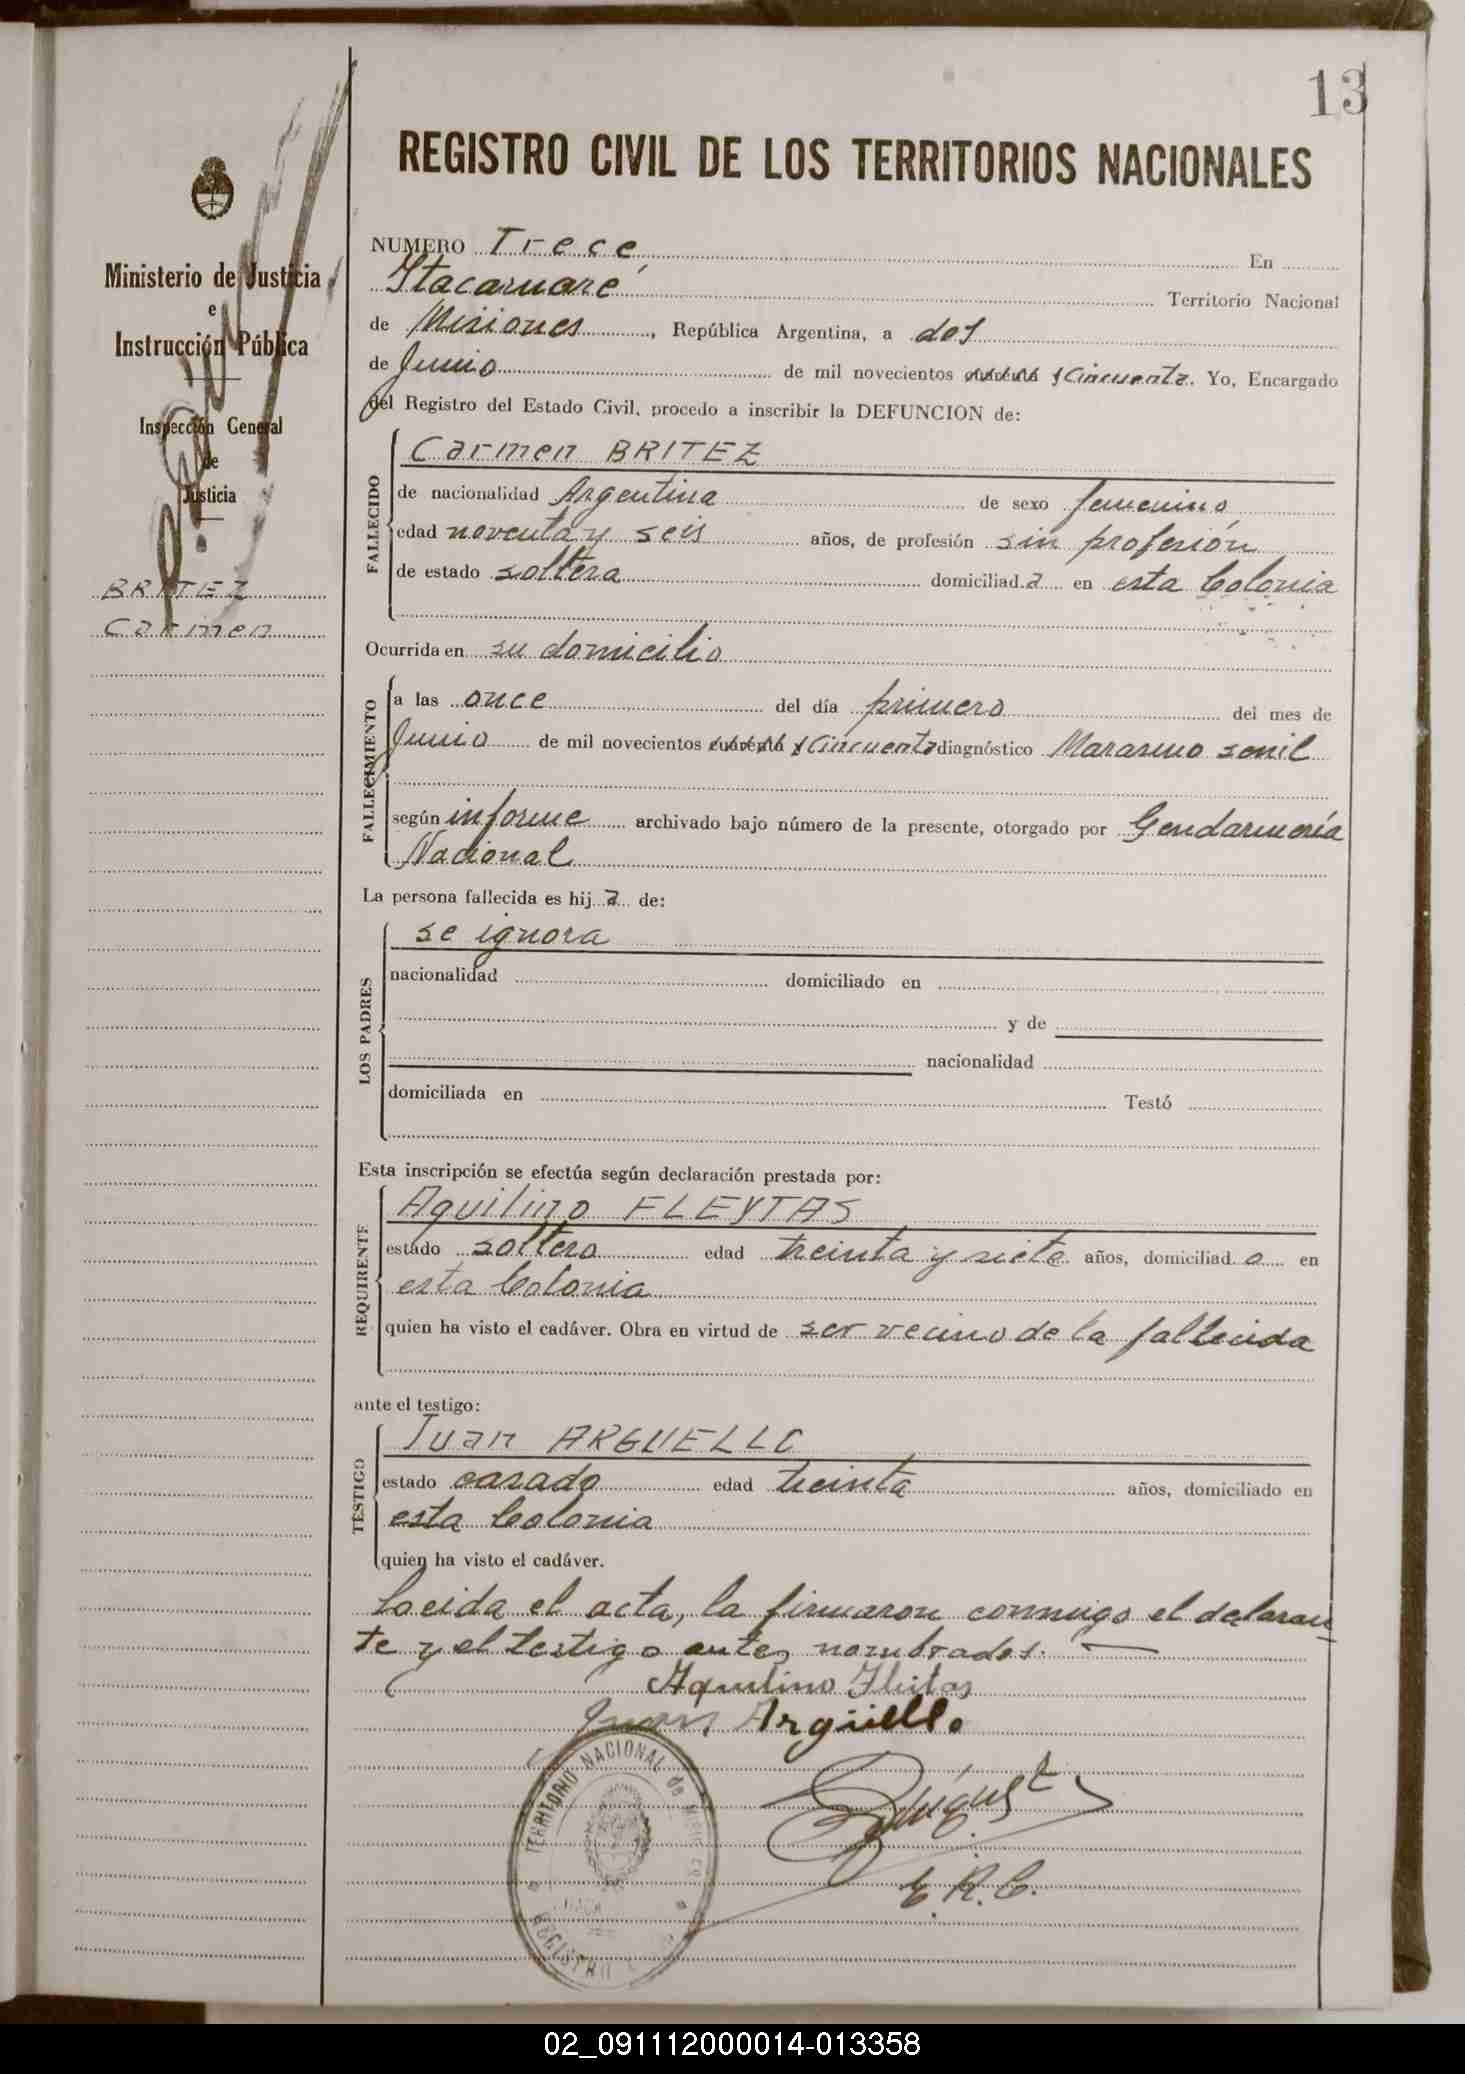 13
REGISTRO CIVIL DE LOS TERRITORIOS NACIONALES
Ministerio de Justicia
e
Instrucción Pública
Inspección General
de
Justicia
BRITEZ
Carmen
NUMERO Trece En
Itacaruaré Territorio Nacional
de Misiones, República Argentina, a dos
de Junio de mil novecientos cuarenta y Cincuenta. Yo, Encargado
del Registro del Estado Civil, procedo a inscribir la DEFUNCION de:
FALLECIDO
Carmen BRITEZ
de nacionalidad Argentina de sexo femenino
edad noventa y seis años, de profesión sin profesión
de estado soltera domiciliad a en esta Colonia
Ocurrida en su domicilio
FALLECIMIENTO
a las once del día primero del mes de
Junio de mil novecientos cuarenta y Cincuenta diagnóstico Marasmo senil
según informe archivado bajo número de la presente, otorgado por Gendarmería
Nacional
La persona fallecida es hij a de:
LOS PADRES
se ignora
nacionalidad domiciliado en
y de
nacionalidad
domiciliada en Testó
Esta inscripción se efectúa según declaración prestada por:
REQUIRENTE
Aquilino FLEYTAS
estado soltero edad treinta y siete años, domiciliad o en
esta Colonia
quien ha visto el cadáver. Obra en virtud de ser vecino de la fallecida
ante el testigo:
TESTIGO
Juan ARGUELLO
estado casado edad treinta años, domiciliado en
esta Colonia
quien ha visto el cadáver.
Leeida el acta, la firmaron conmigo el declaran-
te y el testigo antes nombrados.
Aquilino Fleitas
Juan Argüello
TERRITORIO NACIONAL de
REGISTRO
E.R.C.
02_091112000014-013358